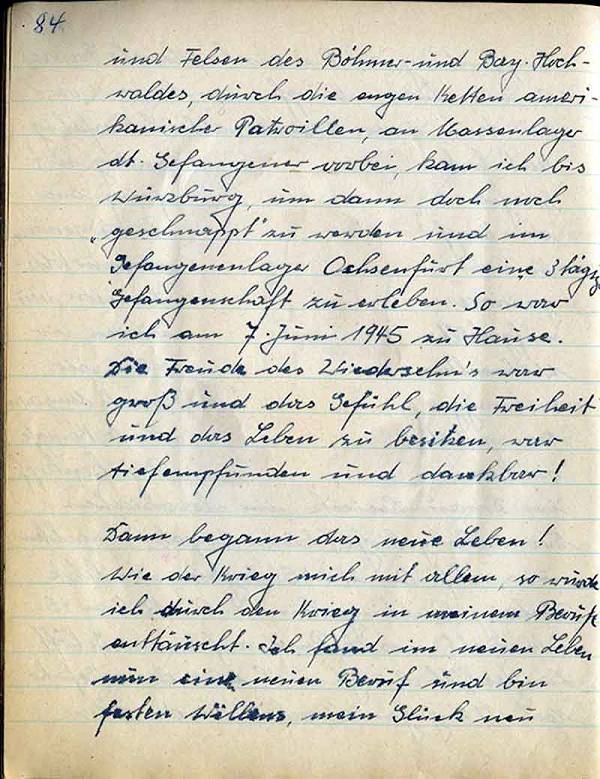 84
und Felsen des Böhmer- und Bay. Hoch-
waldes, durch die engen Ketten ameri-
kanischer Patroillen, an Massenlager
dt. Gefangener vorbei, kam ich bis
Würzburg, um dann doch noch
„geschnappt" zu werden und im
Gefangenenlager Ochsenfurt eine 3tägige
Gefangenschaft zu erleben. So war
ich am 7. Juni 1945 zu Hause.
Die Freude des Wiedersehn's war
groß und das Gefühl, die Freiheit
und das Leben zu besitzen, war
tiefempfunden und dankbar!
Dann begann das neue Leben!
Wie der Krieg mich mit allem, so wurde
ich durch den Krieg in meinem Berufe
enttäuscht. Ich fand im neuen Leben
nun einen neuen Beruf und bin
festen Willens, mein Glück neu